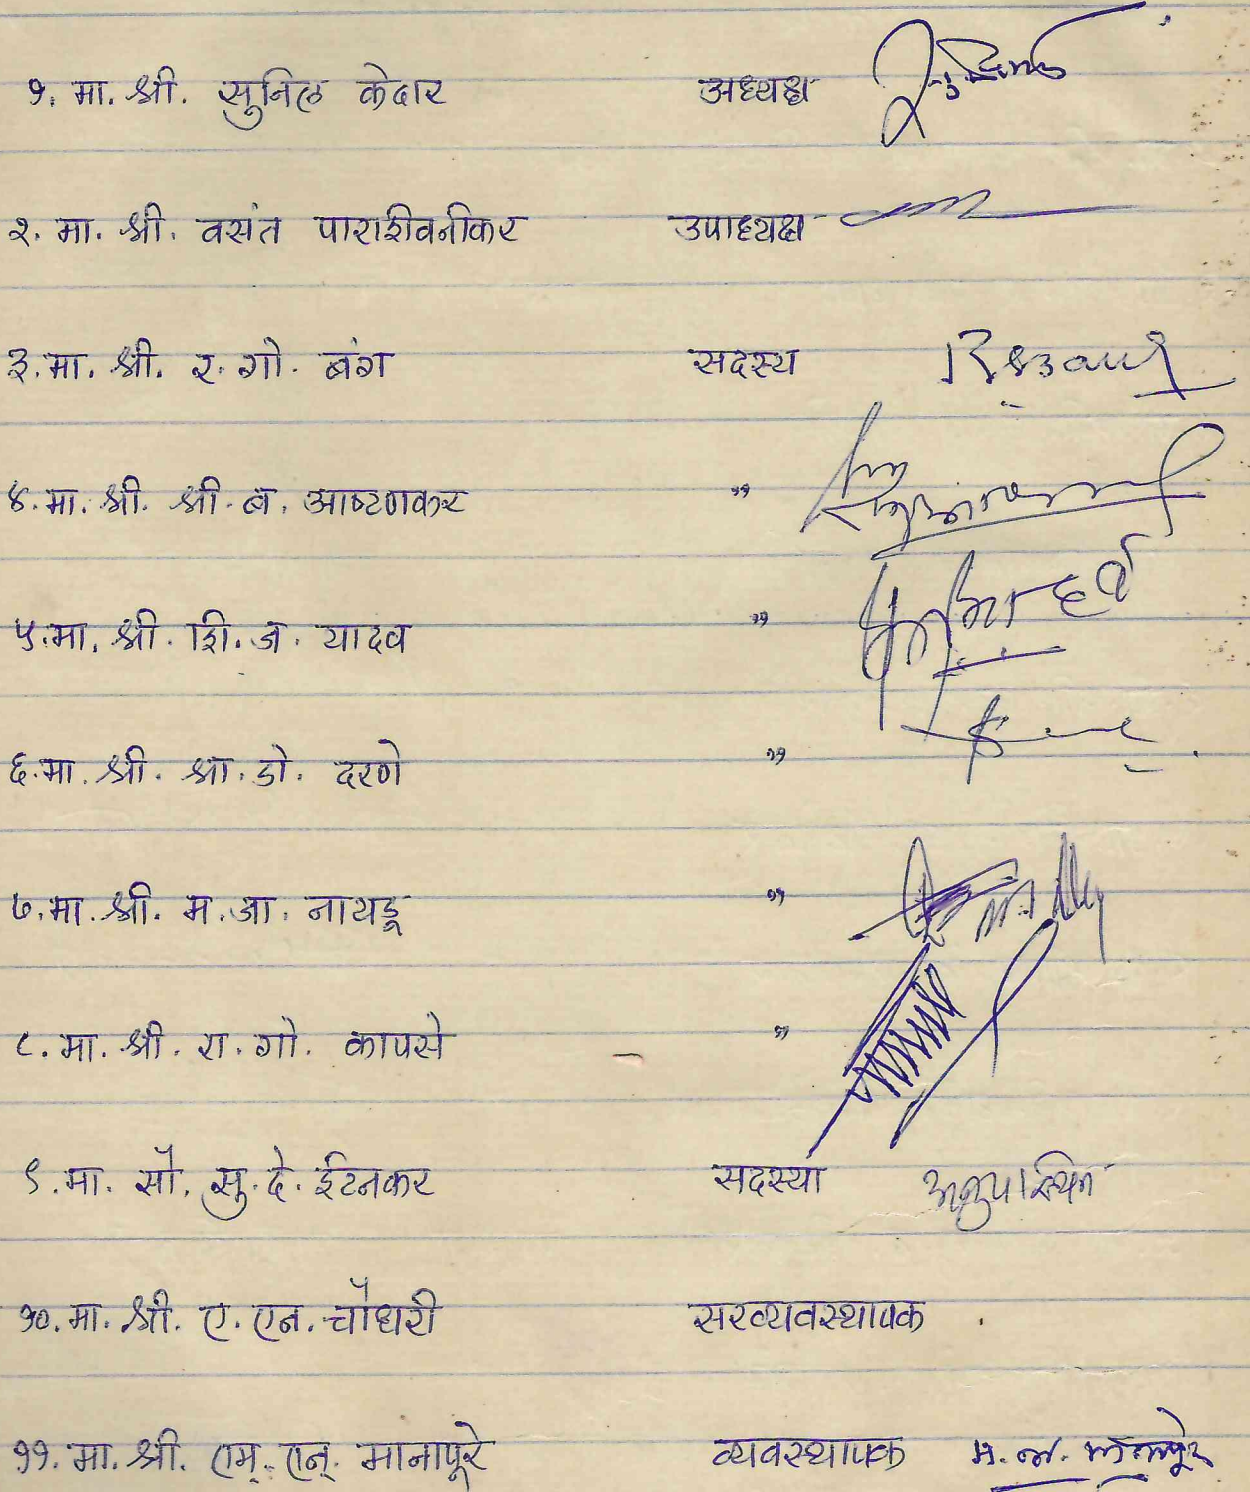 १. मा. श्री. सुनिल केदार अध्यक्ष
२. मा. श्री. वसंत पाराशीवनीकर उपाध्यक्ष
३. मा. श्री. र. गो. बंग सदस्य
४. मा. श्री. श्री. ब. आष्टणकर "
५. मा. श्री. शि. ज. यादव "
६. मा. श्री. श्रा. डो. दरणे "
७. मा. श्री. म. आ. नायडू "
८. मा. श्री. रा. गो. कापसे "
९. मा. सौ. सु. दे. ईटनकर सदस्या अनुपस्थित
१०. मा. श्री. ए. एन. चौधरी सरव्यवस्थापक
११. मा. श्री. एम्. एन्. मानापूरे व्यवस्थापक